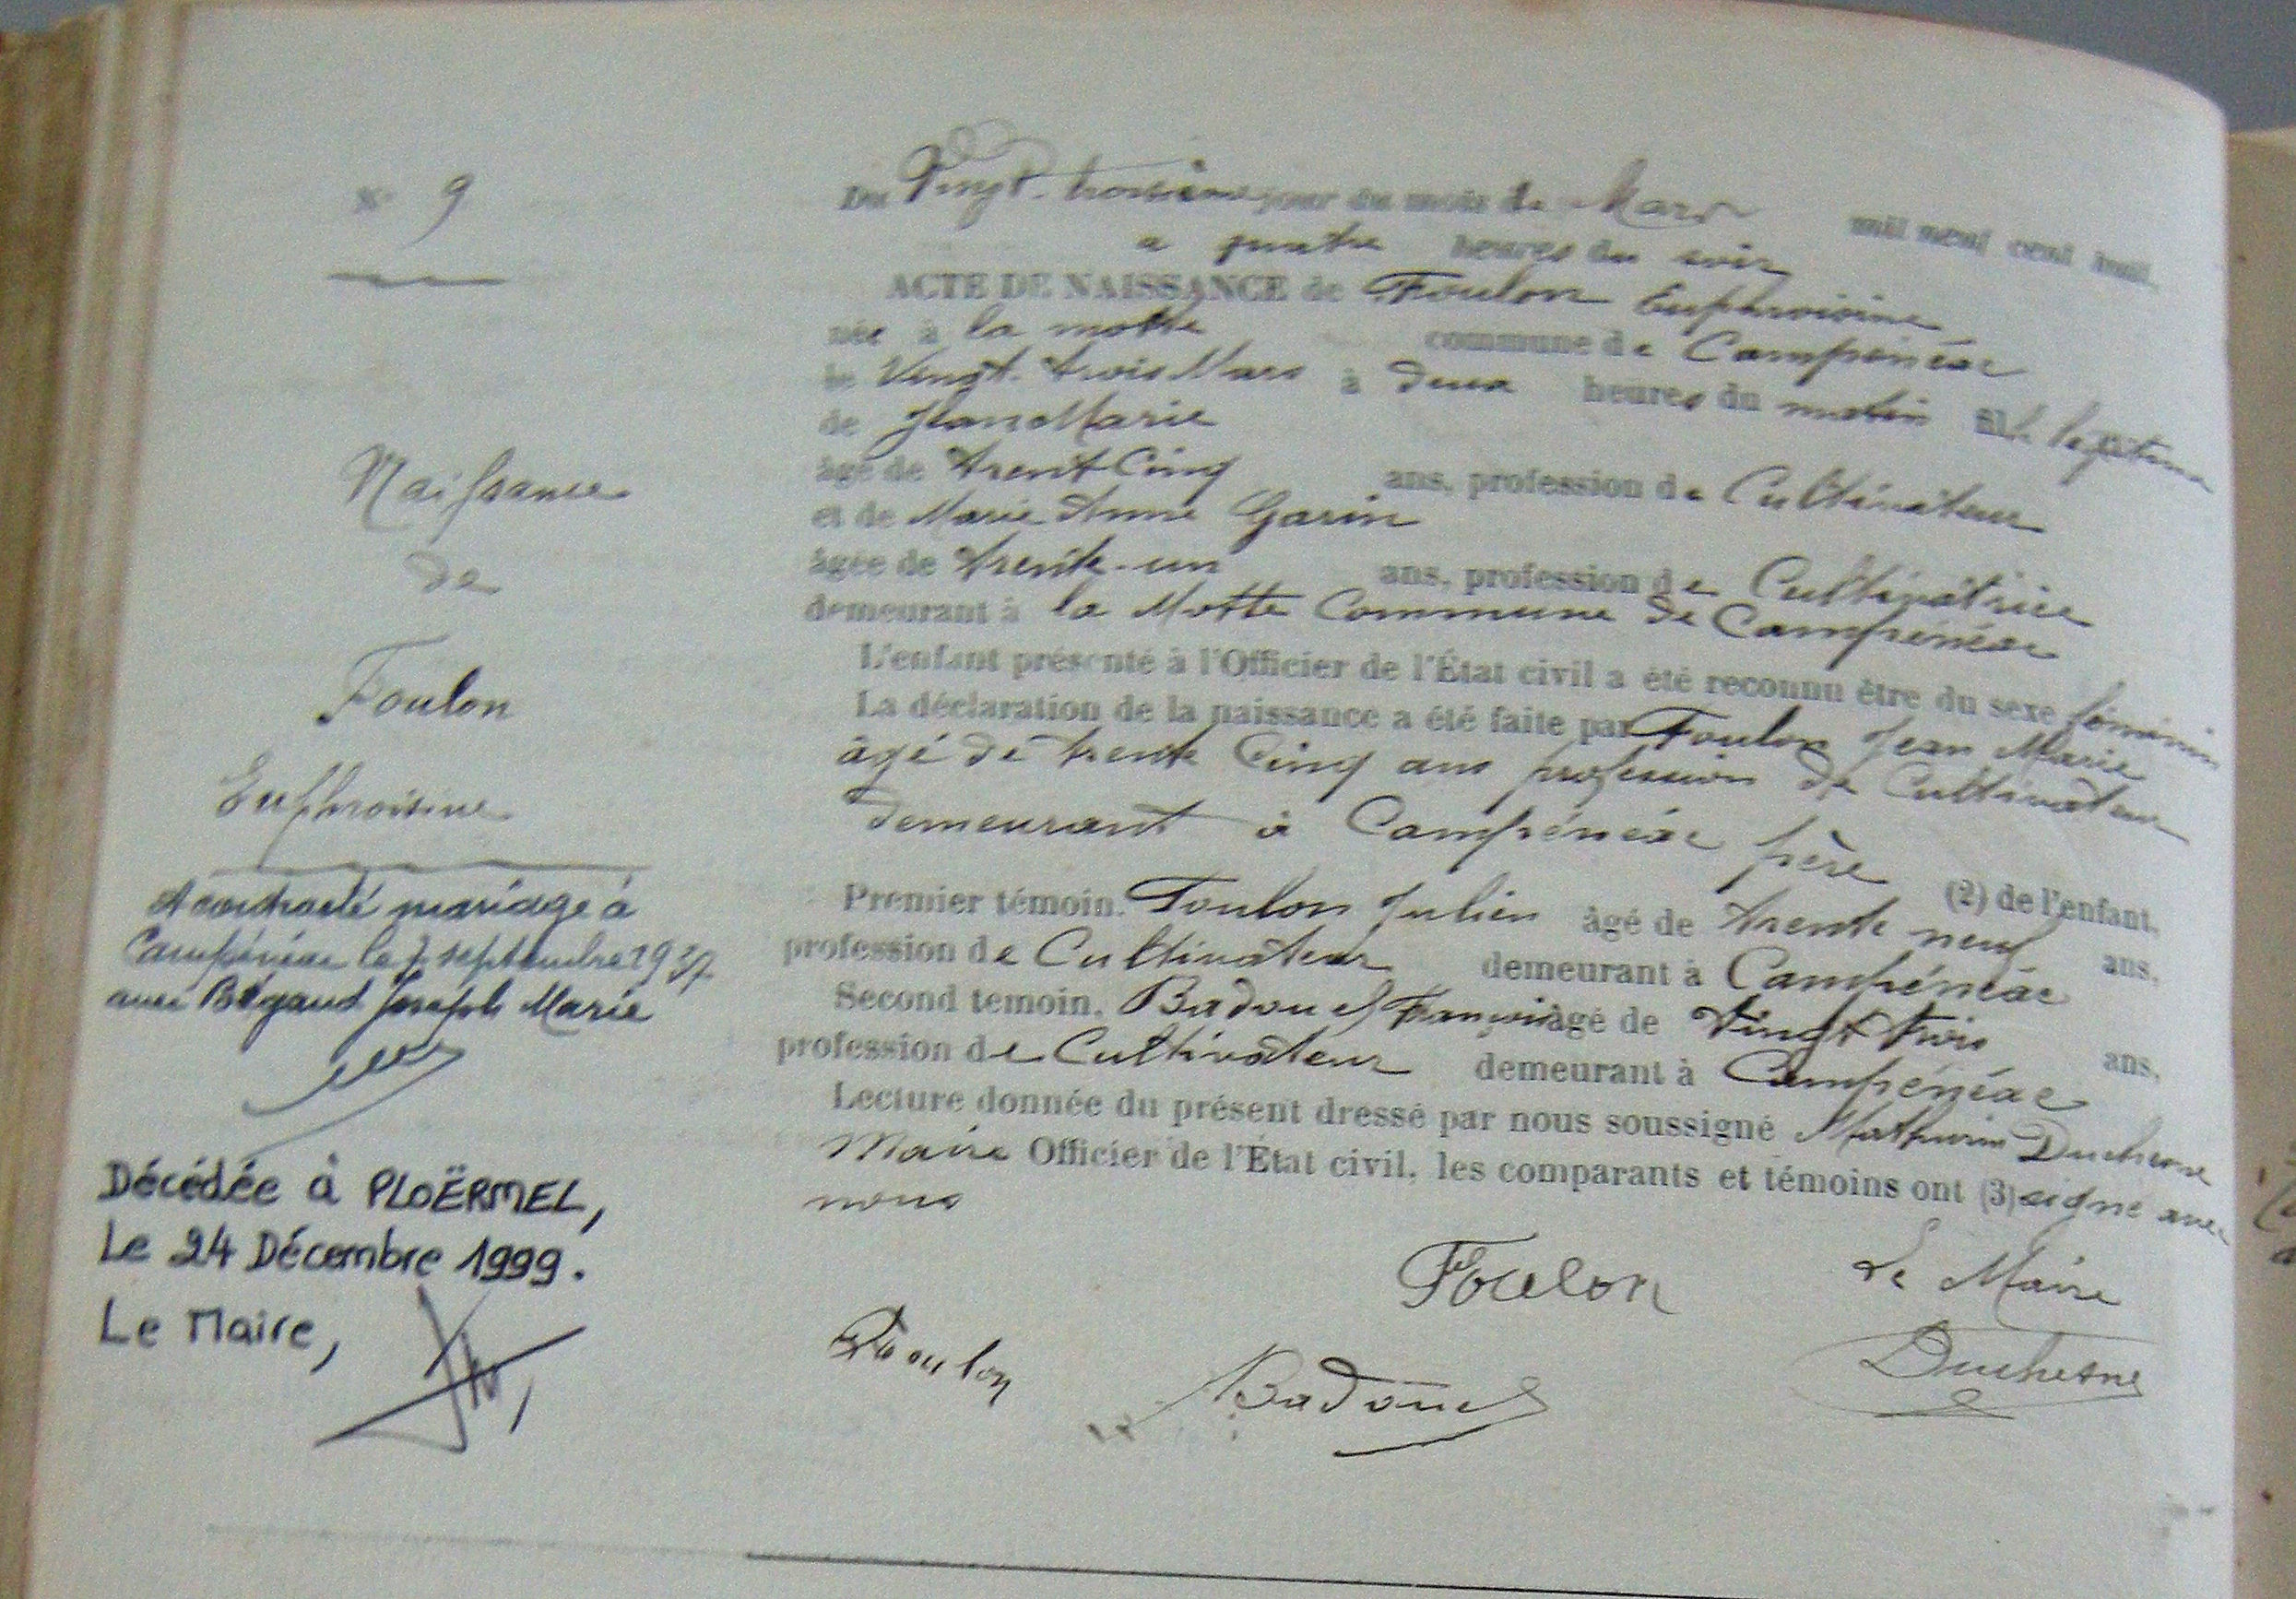 N° 9
Naissance
de
Foulon
Euphroisine
A contracté mariage à
Campénéac le 7 septembre 1937
avec Bégaud Joseph Marie
Décédée à PLOËRMEL,
Le 24 Décembre 1999.
Le Maire,
Du Vingt-troisième jour du mois de Mars mil neuf cent huit
a quatre heures du soir
ACTE DE NAISSANCE de Foulon Euphroisine
née à la motte commune de Campénéac
le Vingt-trois Mars à deux heures du matin fille légitime
de Jean Marie
âgé de trent Cinq ans, profession de Cultivateur
et de Marie Anne Garin
âgée de trente-un ans, profession de Cultivatrice
demeurant à la Motte Commune de Campénéac
L'enfant présenté à l'Officier de l'État civil a été reconnu être du sexe féminin
La déclaration de la naissance a été faite par Foulon Jean Marie
âgé de trente Cinq ans profession de Cultivateur
demeurant à Campénéac père (2) de l'enfant.
Premier témoin. Foulon Julien âgé de trente neuf ans,
profession de Cultivateur demeurant à Campénéac
Second témoin. Badouel François âgé de Vingt trois ans,
profession de Cultivateur demeurant à Campénéac
Lecture donnée du présent dressé par nous soussigné Mathurin Duchesne
Maire Officier de l'État civil, les comparants et témoins ont (3) signé avec
nous
Foulon Le Maire
Foulon Badouel Duchesne